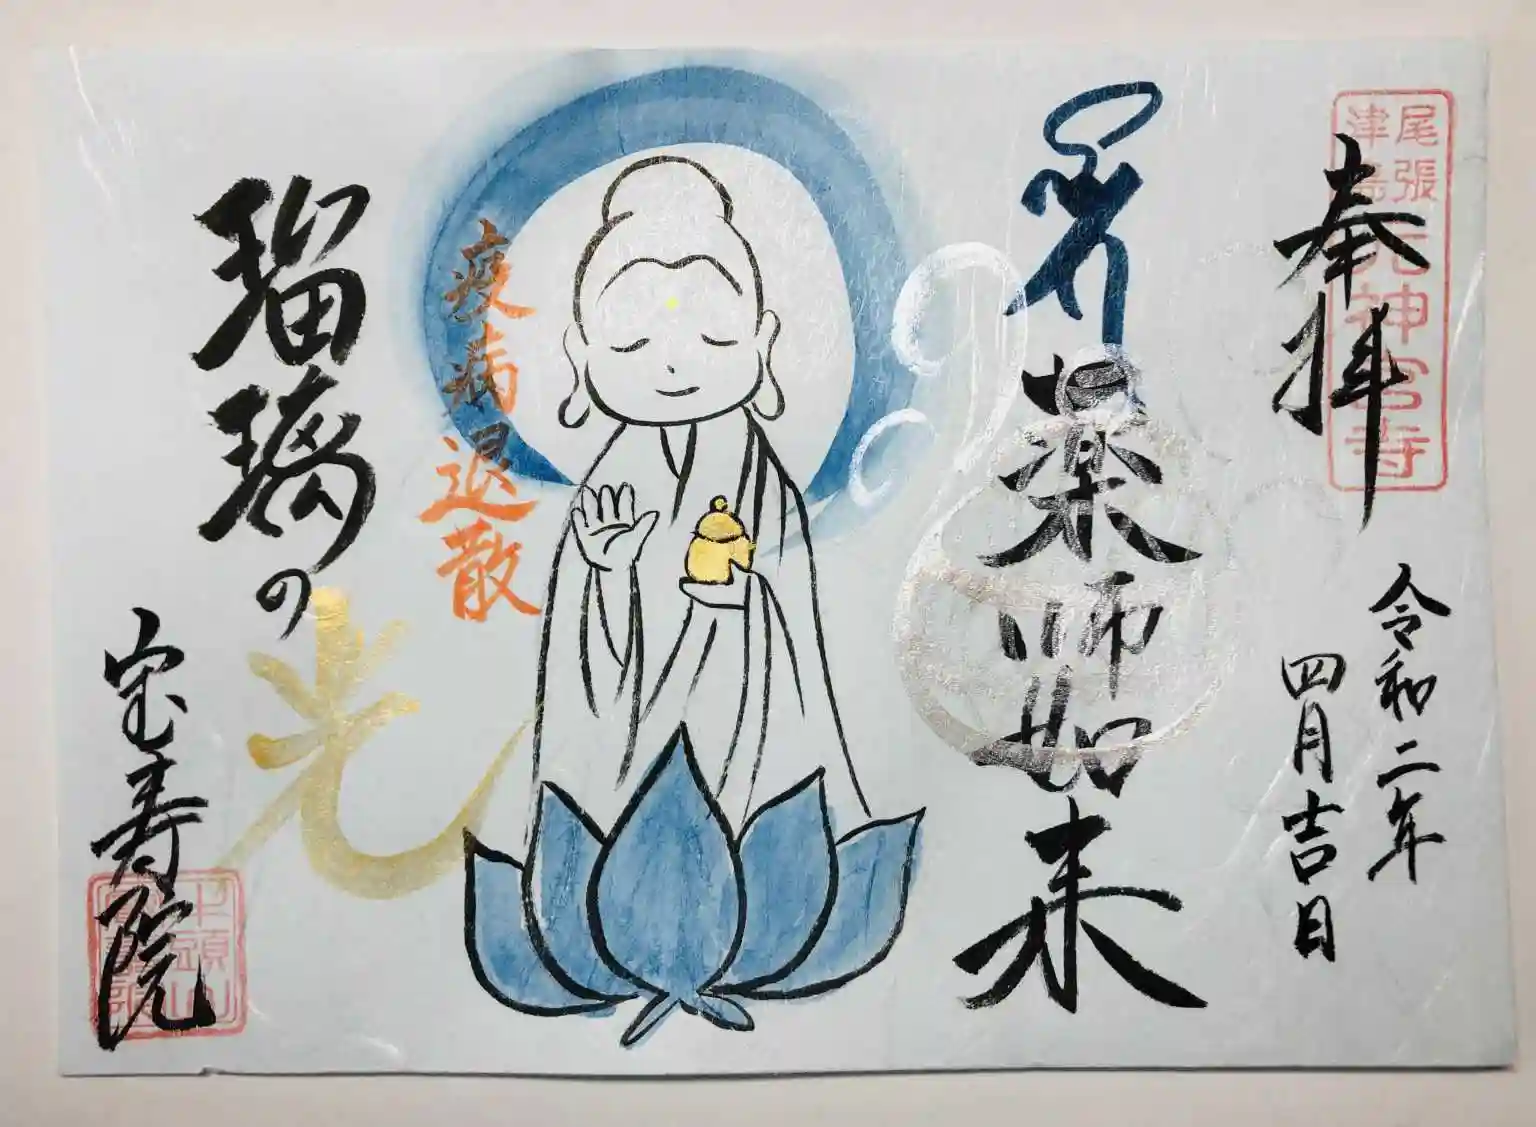 奉拝
尾張
津島
元神宮寺
令和二年
四月吉日
薬師如来
疫病退散
瑠璃の光
宝寿院